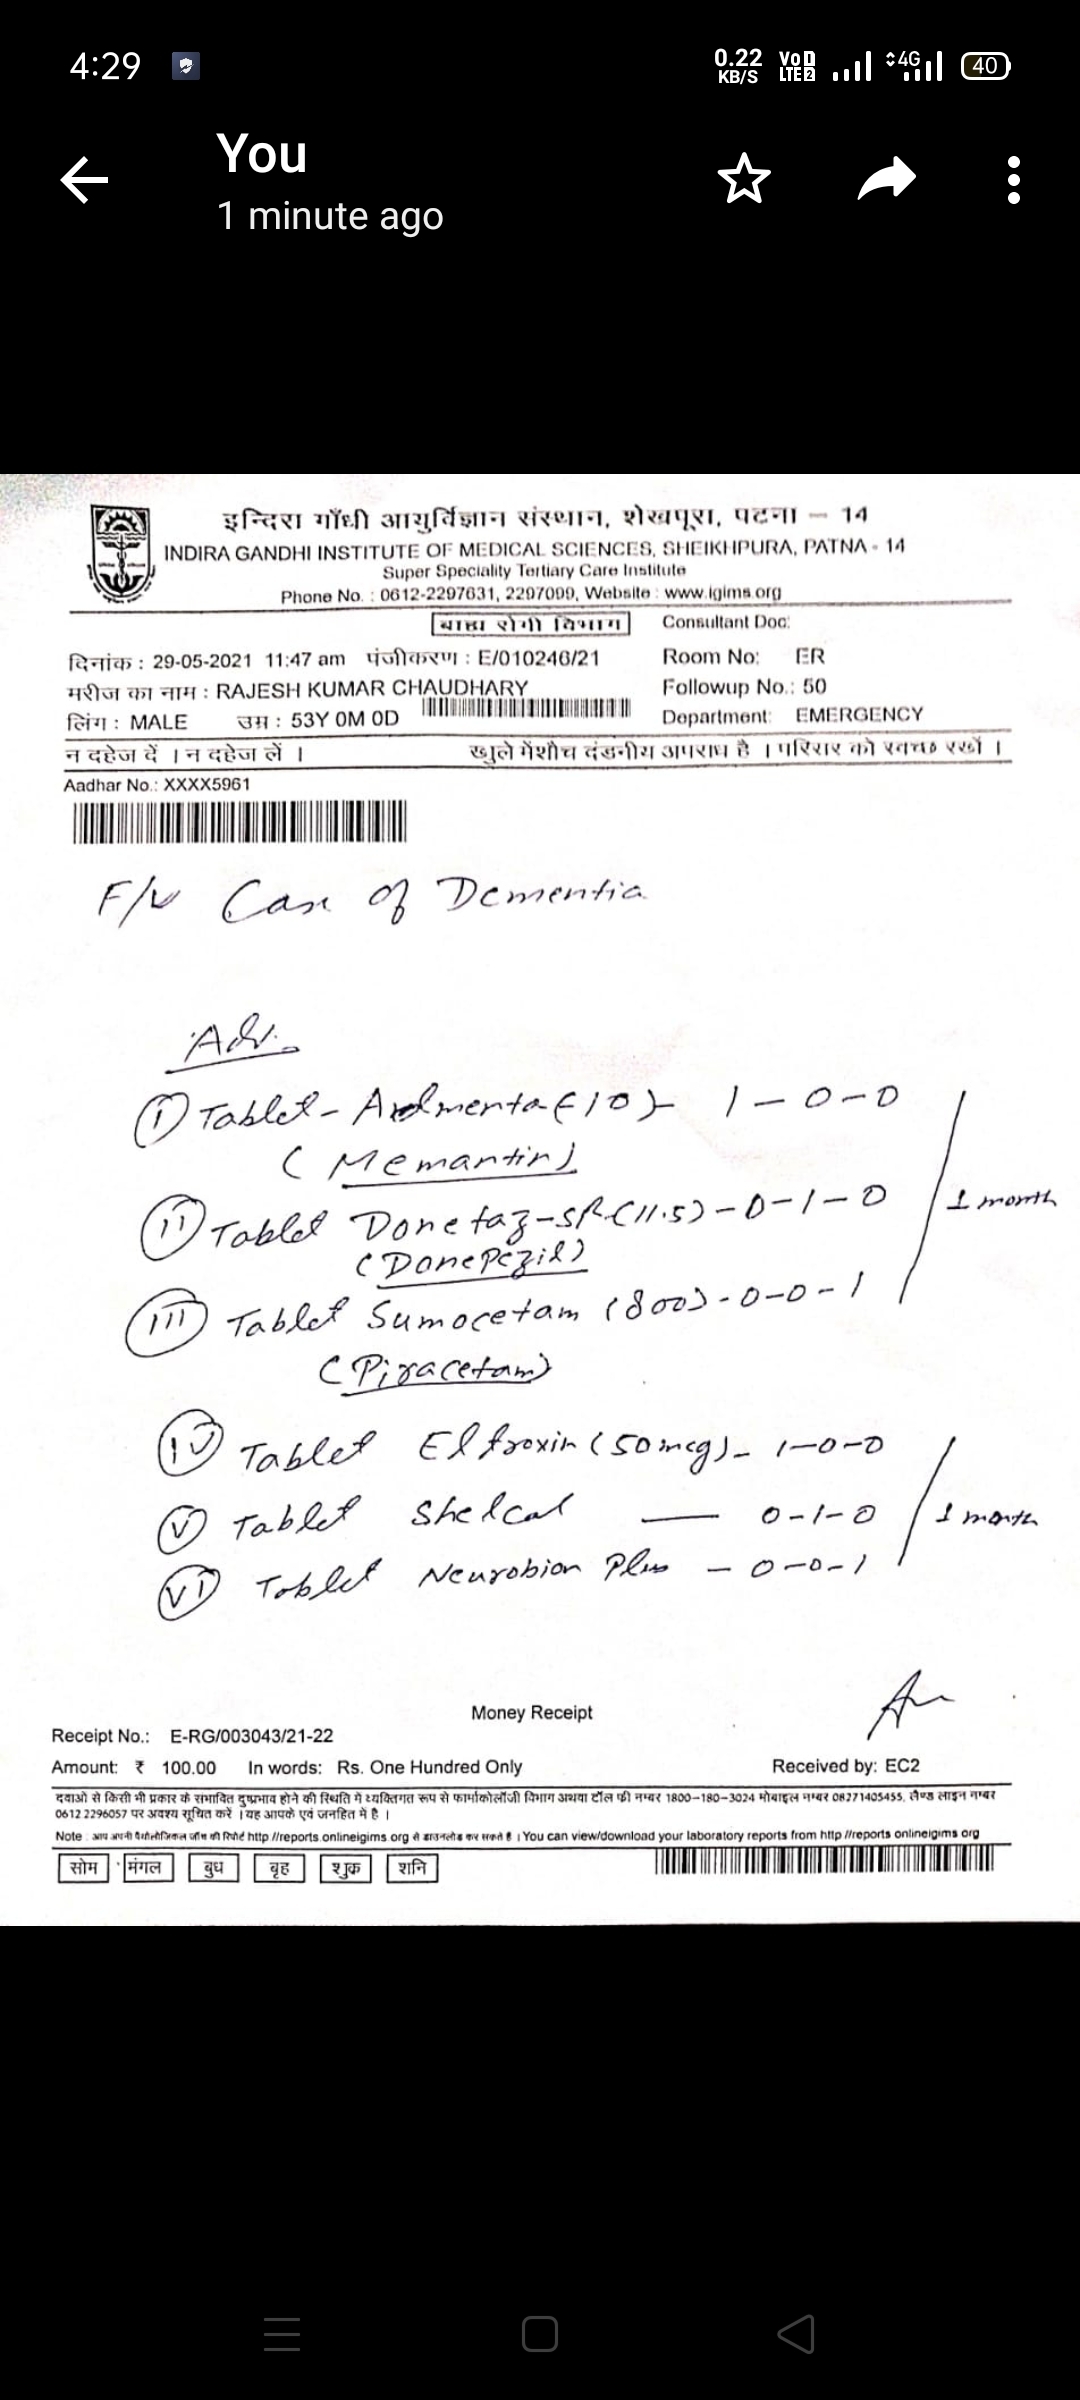 4:29
0.22 KB/S VoD LTE2 4G 40
You
1 minute ago
इन्दिरा गाँधी आयुर्विज्ञान संस्थान, शेखपूरा, पटना – 14
INDIRA GANDHI INSTITUTE OF MEDICAL SCIENCES, SHEIKHPURA, PATNA - 14
Super Speciality Tertiary Care Institute
Phone No. : 0612-2297631, 2297099, Website : www.igims.org
बाह्य रोगी विभाग
Consultant Doc:
दिनांक : 29-05-2021 11:47 am पंजीकरण : E/010246/21
Room No: ER
मरीज का नाम : RAJESH KUMAR CHAUDHARY
Followup No.: 50
लिंग : MALE उम्र : 53Y 0M 0D
Department: EMERGENCY
न दहेज दें । न दहेज लें ।
खुले में शौच दंडनीय अपराध है । परिसर को स्वच्छ रखें ।
Aadhar No.: XXXX5961
F/U Case of Dementia
Adv.
(i) Tablet - Admenta (10) - 1-0-0
(Memantin)
(ii) Tablet Donetaz-SR (11.5) - 0-1-0
(Donepezil)
1 month
(iii) Tablet Sumocetam (800) - 0-0-1
(Piracetam)
(iv) Tablet Eltroxin (50 mcg) - 1-0-0
(v) Tablet Shelcal — 0-1-0
1 month
(vi) Tablet Neurobion Plus - 0-0-1
Money Receipt
Receipt No.: E-RG/003043/21-22
Amount: ₹ 100.00 In words: Rs. One Hundred Only
Received by: EC2
दवाओ से किसी भी प्रकार के संभावित दुष्प्रभाव होने की स्थिति में व्यक्तिगत रूप से फार्माकोलॉजी विभाग अथवा टॉल फ्री नम्बर 1800-180-3024 मोबाइल नम्बर 08271405455, लैण्ड लाइन नम्बर
0612 2296057 पर अवश्य सूचित करें । यह आपके एवं जनहित में है ।
Note : आप अपनी पैथोलोजिकल जाँच की रिपोर्ट http //reports.onlineigims org से डाउनलोड कर सकते है । You can view/download your laboratory reports from http //reports onlineigims org
सोम मंगल बुध बृह शुक्र शनि